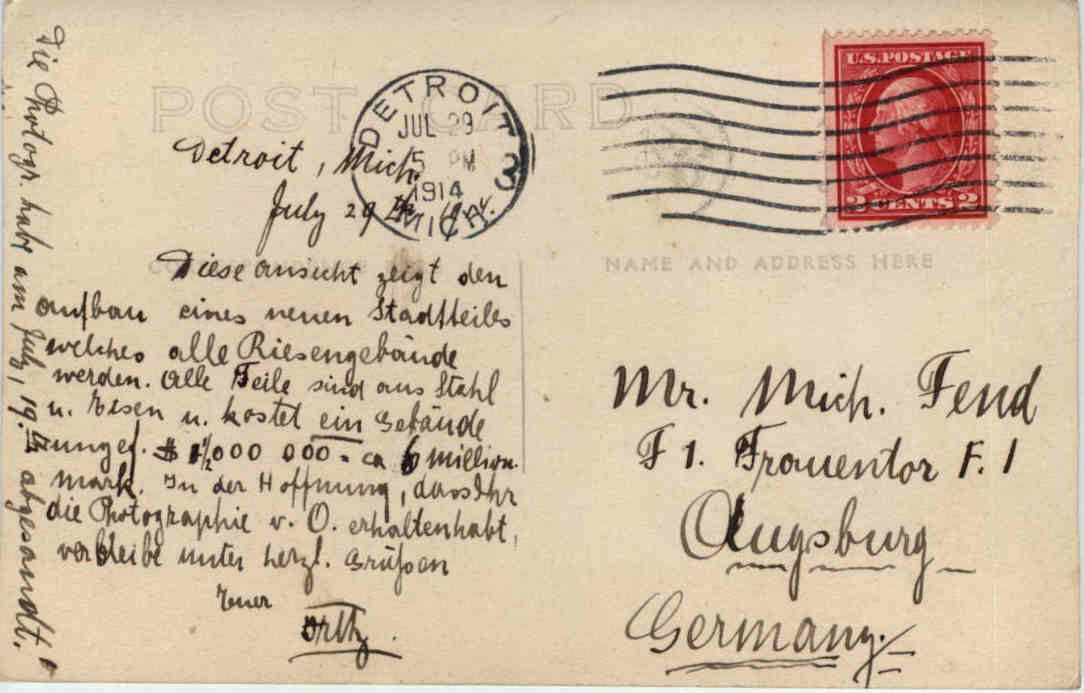 POST CARD
U.S. POSTAGE
2 CENTS 2
DETROIT
JUL 29
5 PM
1914
MICH.
3
Detroit, Mich.
July 29
CORRESPONDENCE
Diese ansicht zeigt den
aufbau eines neuen Stadtteiles
welches alle Riesengebäude
werden. Alle Teile sind aus Stahl
u. Eisen u. kostet ein Gebäude
ungef. $ 1½000 000 = ca 6 million.
mark. In der Hoffnung, dass Ihr
die Photographie v. O. erhalten habt,
verbleibe unter herzl. Grüßen
Euer
Die Photogr. habe am July, 19. abgesandt.
NAME AND ADDRESS HERE
Mr. Mich. Fend
F 1. Frauentor F. 1
Augsburg
Germany.